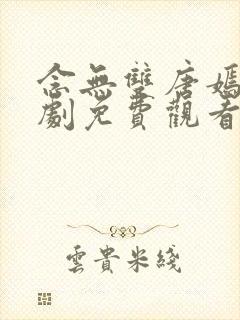 念無雙唐嫣
劇免費觀看
雲貴米綫